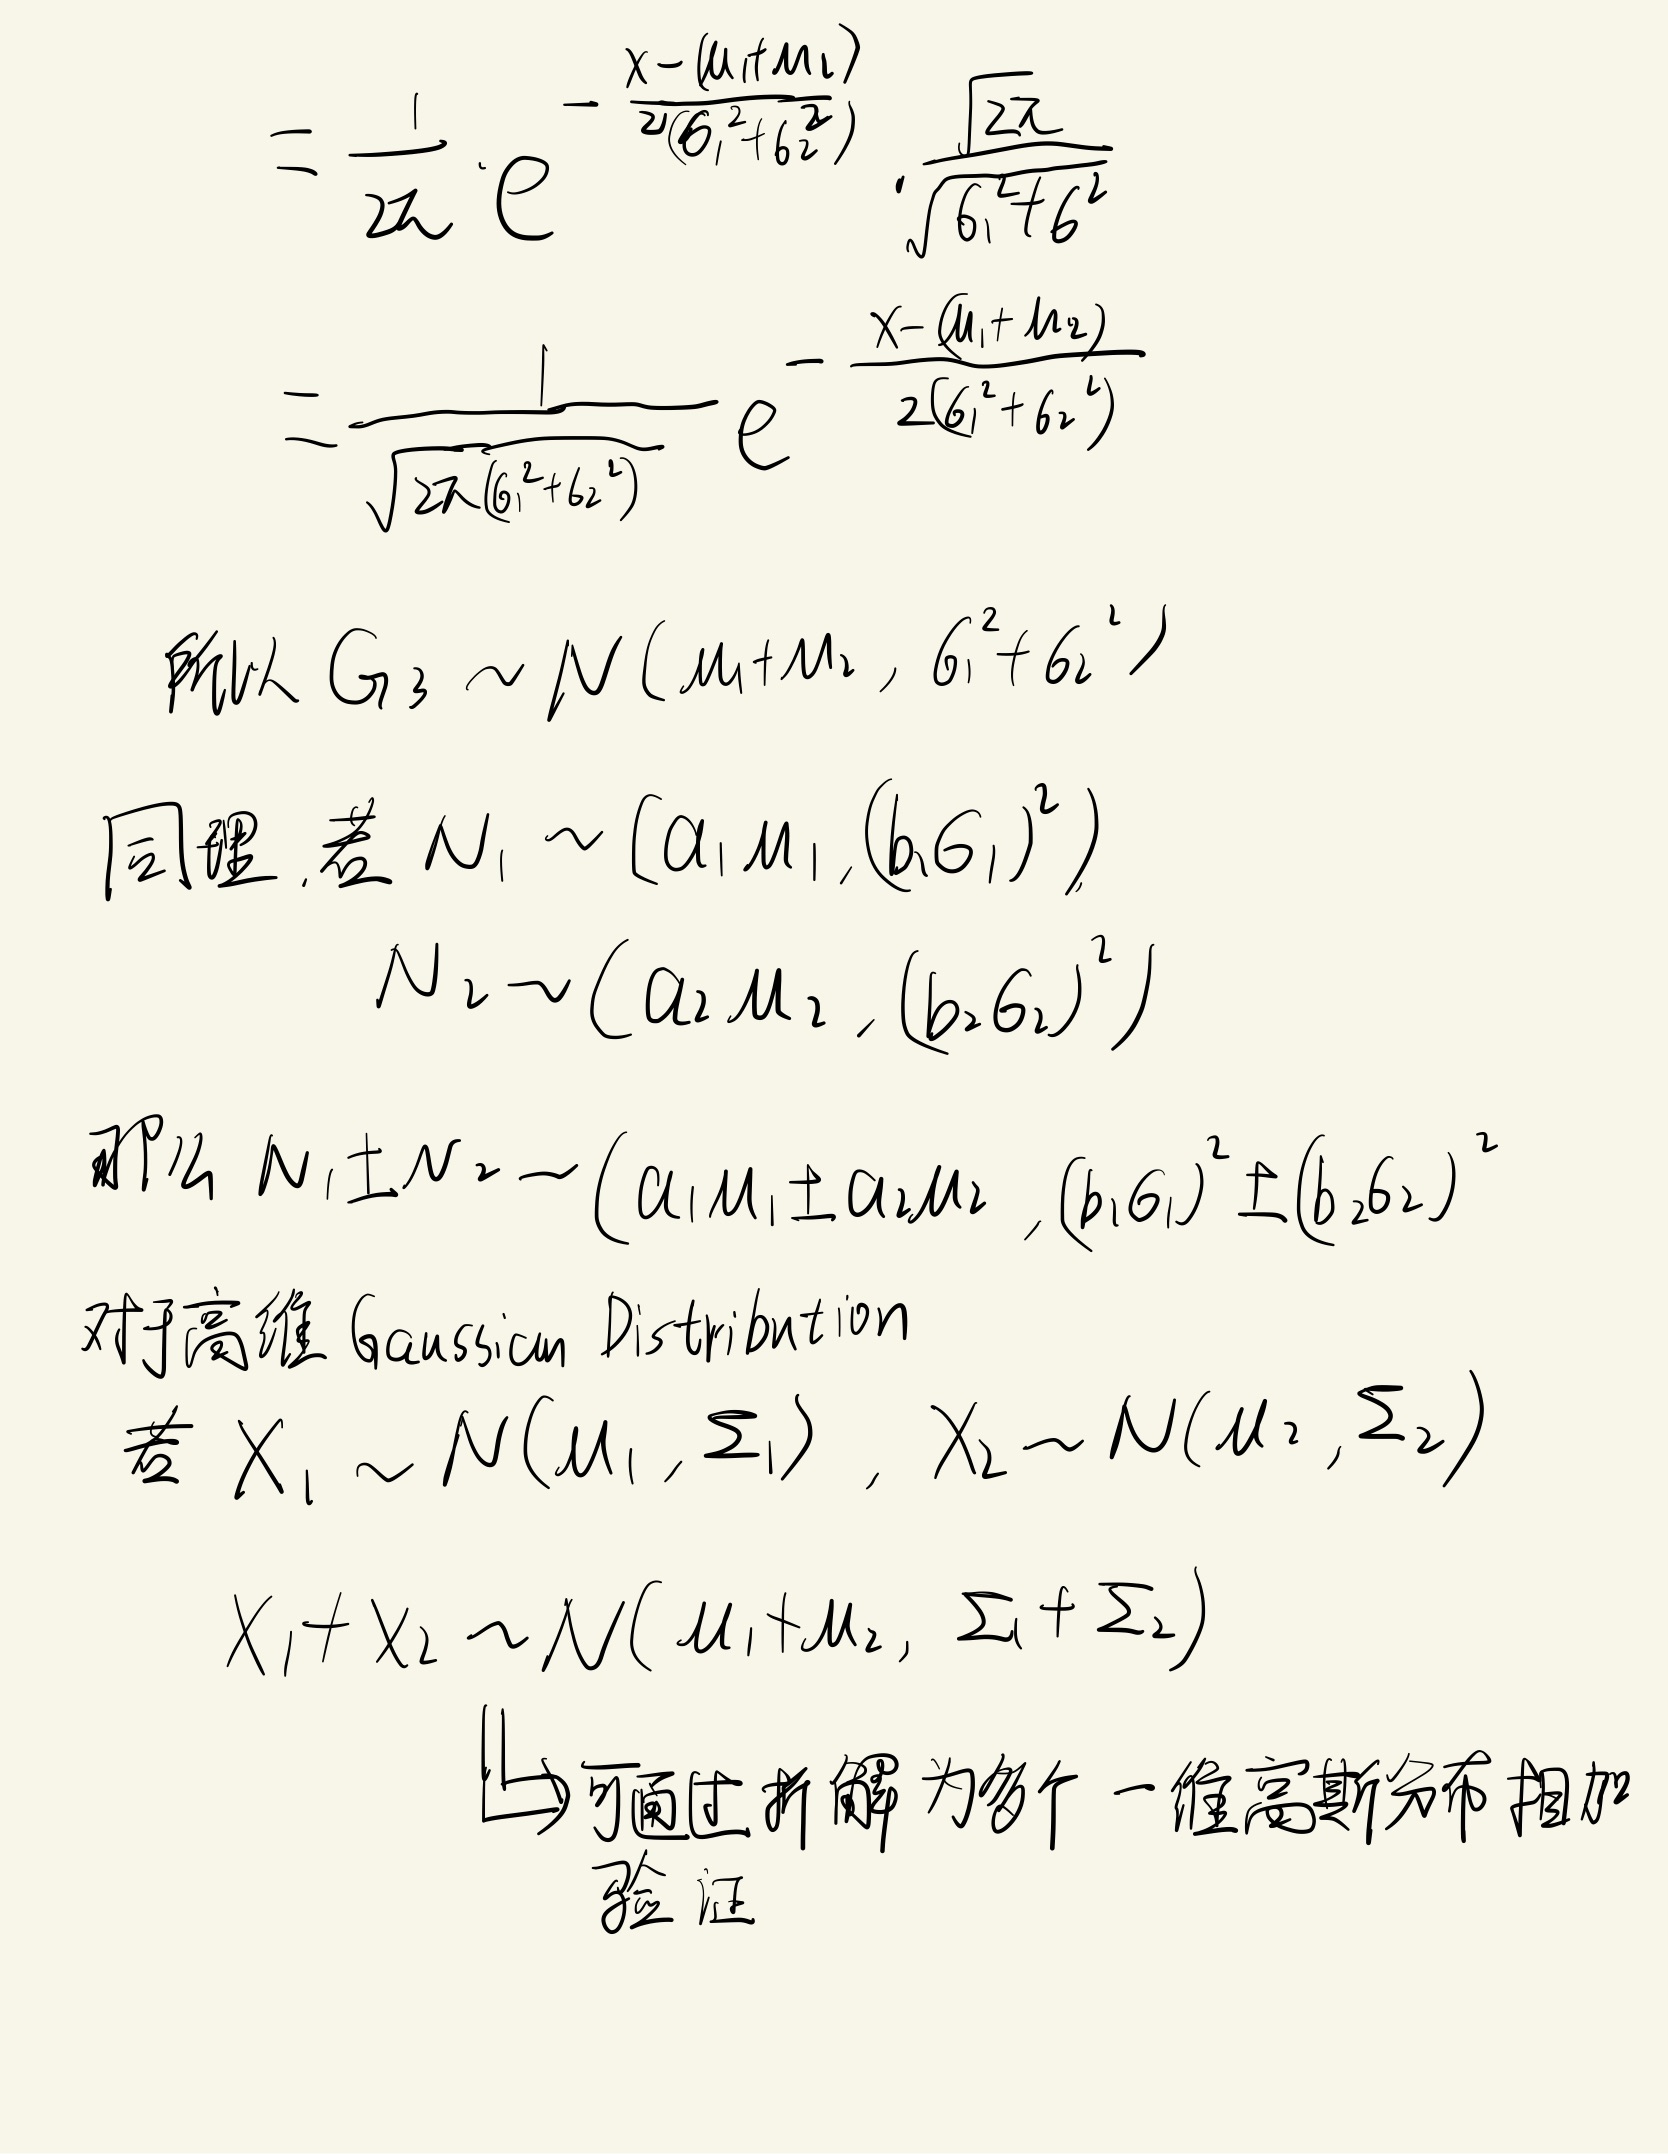 = \frac{1}{2π} · e^{-\frac{x-(μ₁+μ₂)}{2(σ₁²+σ₂²)}} · \frac{\sqrt{2π}}{\sqrt{σ₁²+σ²}}
= \frac{1}{\sqrt{2π(σ₁²+σ₂²)}} e^{-\frac{x-(μ₁+μ₂)}{2(σ₁²+σ₂²)}}
所以 G₃ ~ N(μ₁+μ₂, σ₁²+σ₂²)
同理,若 N₁ ~ (a₁μ₁,(b₁σ₁)²),
N₂ ~ (a₂μ₂,(b₂σ₂)²)
那么 N₁±N₂ ~ (a₁μ₁±a₂μ₂,(b₁σ₁)²±(b₂σ₂)²
对于高维 Gaussian Distribution
若 X₁ ~ N(μ₁,Σ₁), X₂ ~ N(μ₂,Σ₂)
X₁+X₂ ~ N(μ₁+μ₂, Σ₁+Σ₂)
可通过拆解为多个一维高斯分布相加
验证